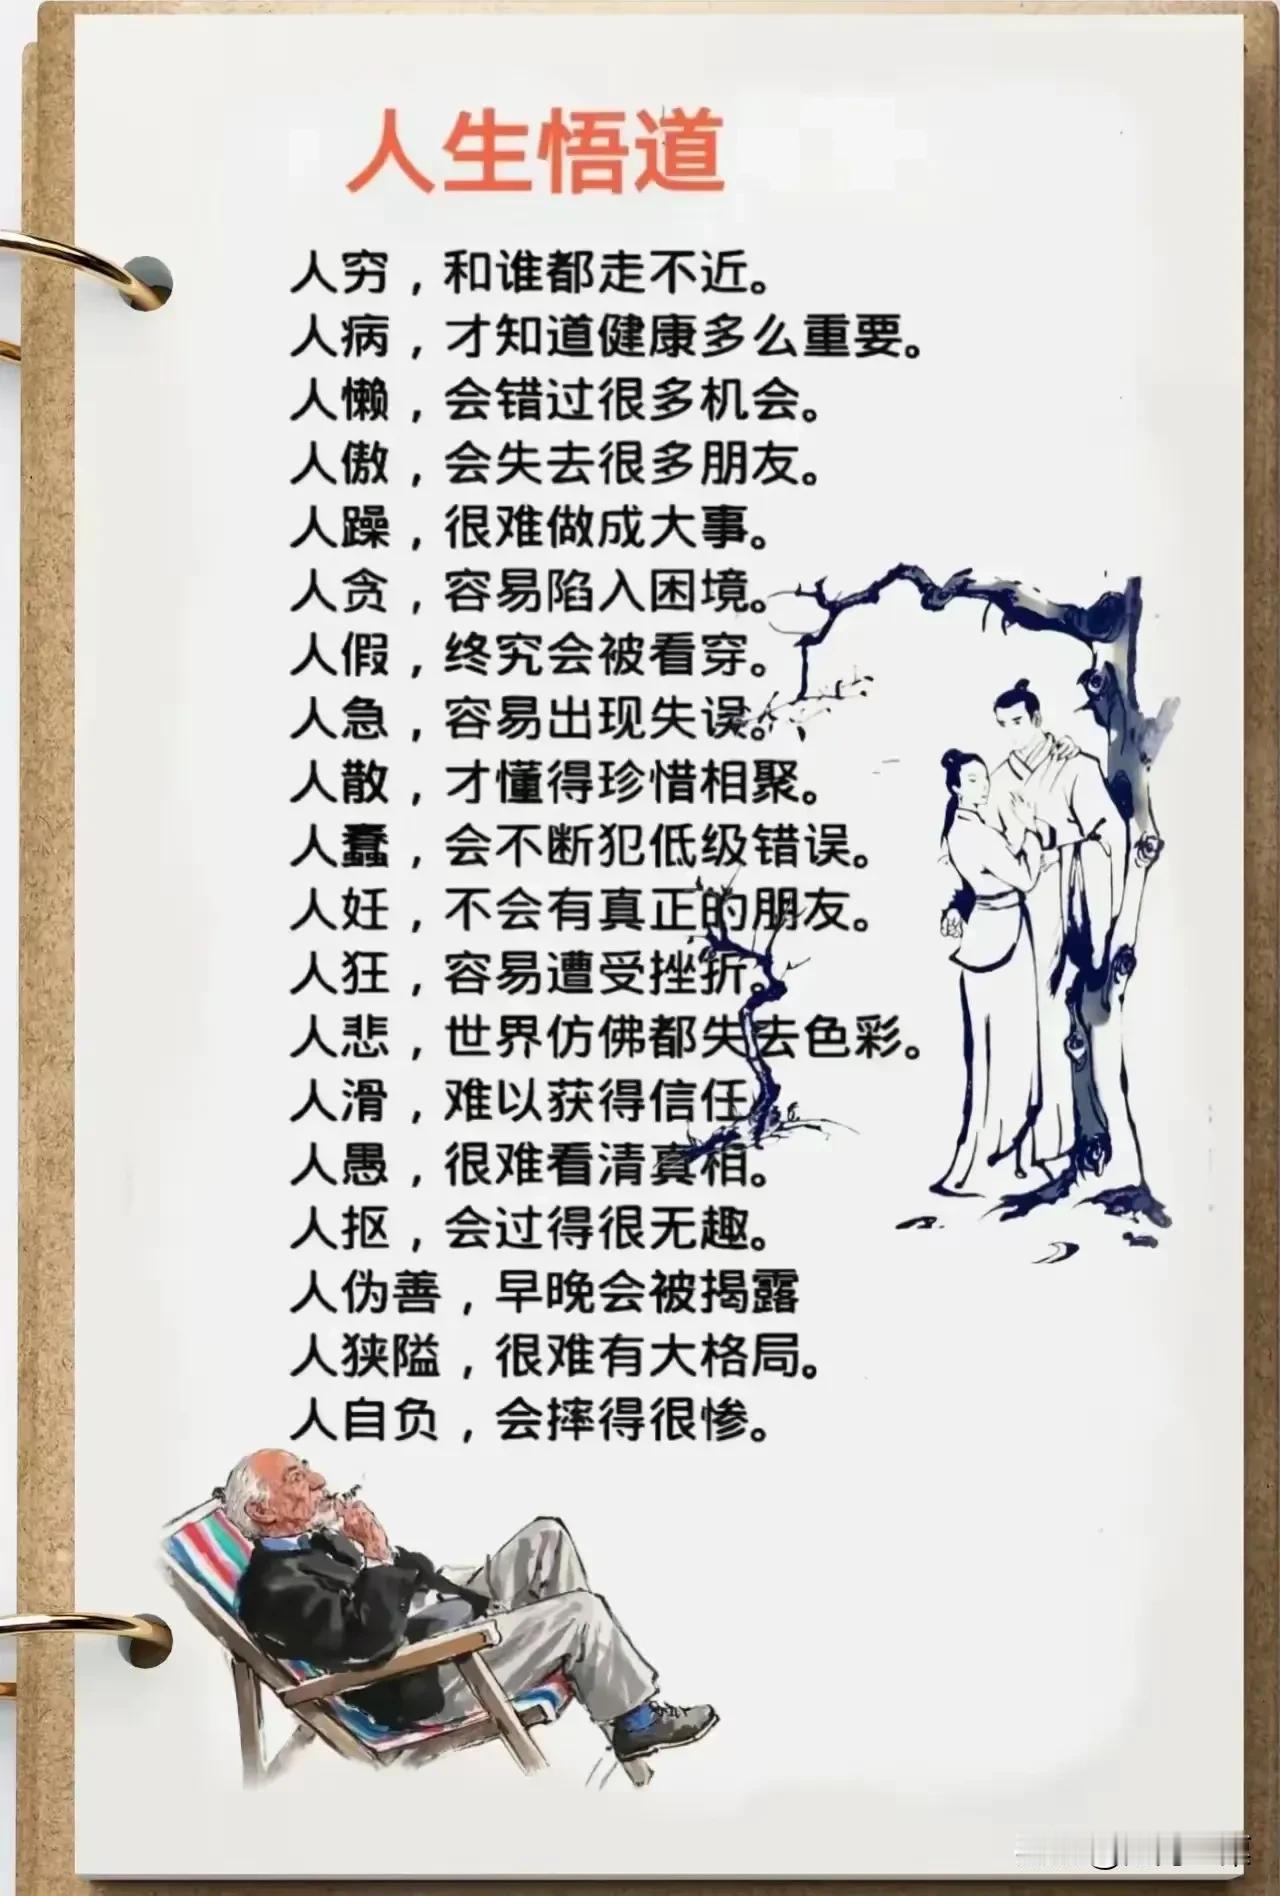 人生悟道
人穷，和谁都走不近。
人病，才知道健康多么重要。
人懒，会错过很多机会。
人傲，会失去很多朋友。
人躁，很难做成大事。
人贪，容易陷入困境。
人假，终究会被看穿。
人急，容易出现失误。
人散，才懂得珍惜相聚。
人蠢，会不断犯低级错误。
人妊，不会有真正的朋友。
人狂，容易遭受挫折。
人悲，世界仿佛都失去色彩。
人滑，难以获得信任
人愚，很难看清真相。
人抠，会过得很无趣。
人伪善，早晚会被揭露
人狭隘，很难有大格局。
人自负，会摔得很惨。